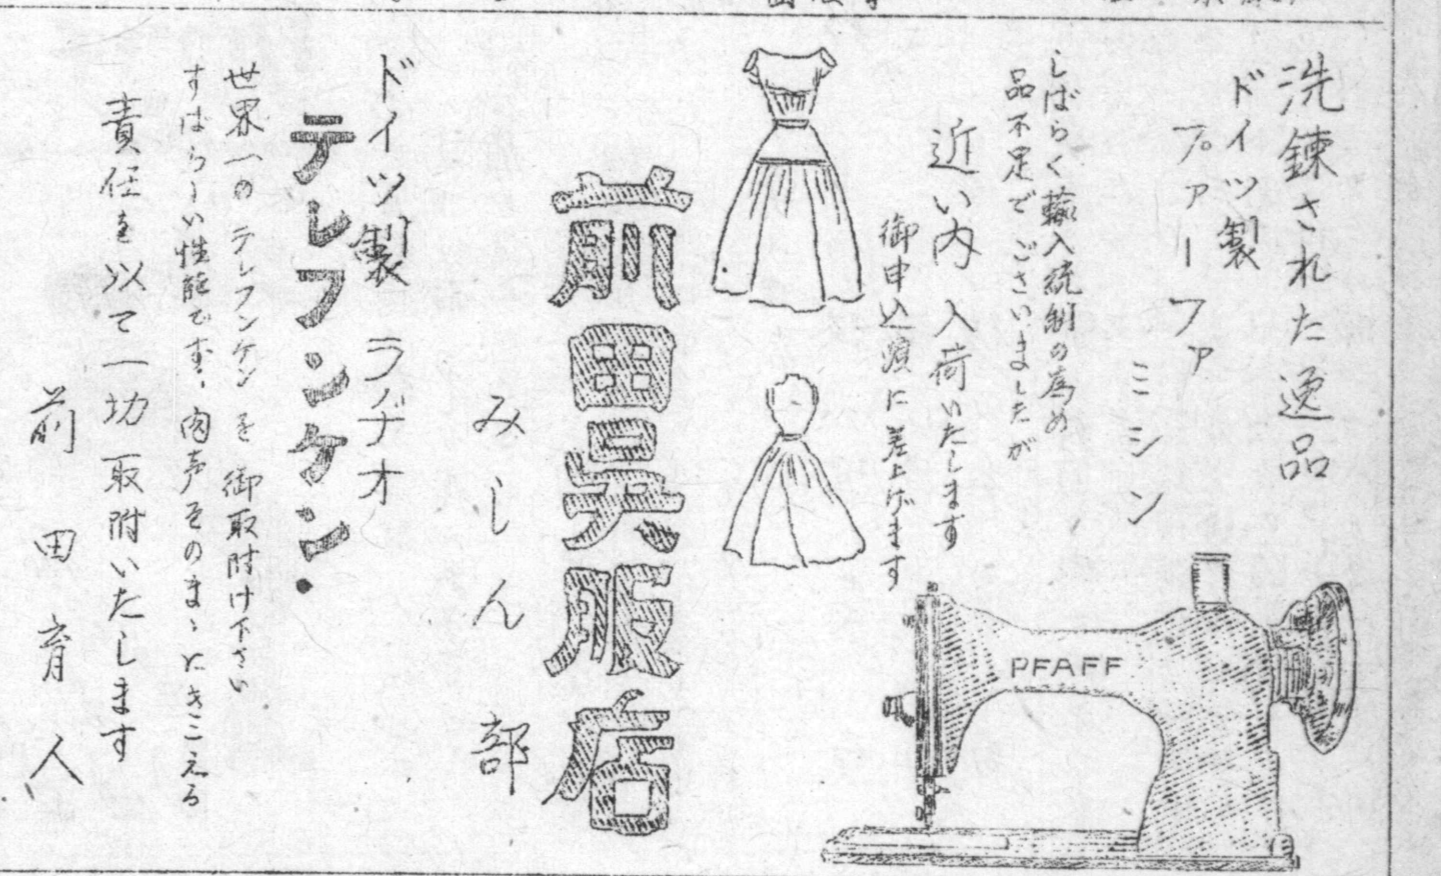 洗錬された逸品
ドイツ製
プァーファ
ミシン
しばらく輸入統制の為め
品不足でございましたが
近い内入荷いたします
御申込順に差上げます
PFAFF
前田呉服店
みしん部
ドイツ製 ラヂオ
テレフンケン.
世界一のテレフンケンを 御取附け下さい
すばらしい性能です、肉声そのまゝにきこえる
責任を以て一切取附いたします
前田育人